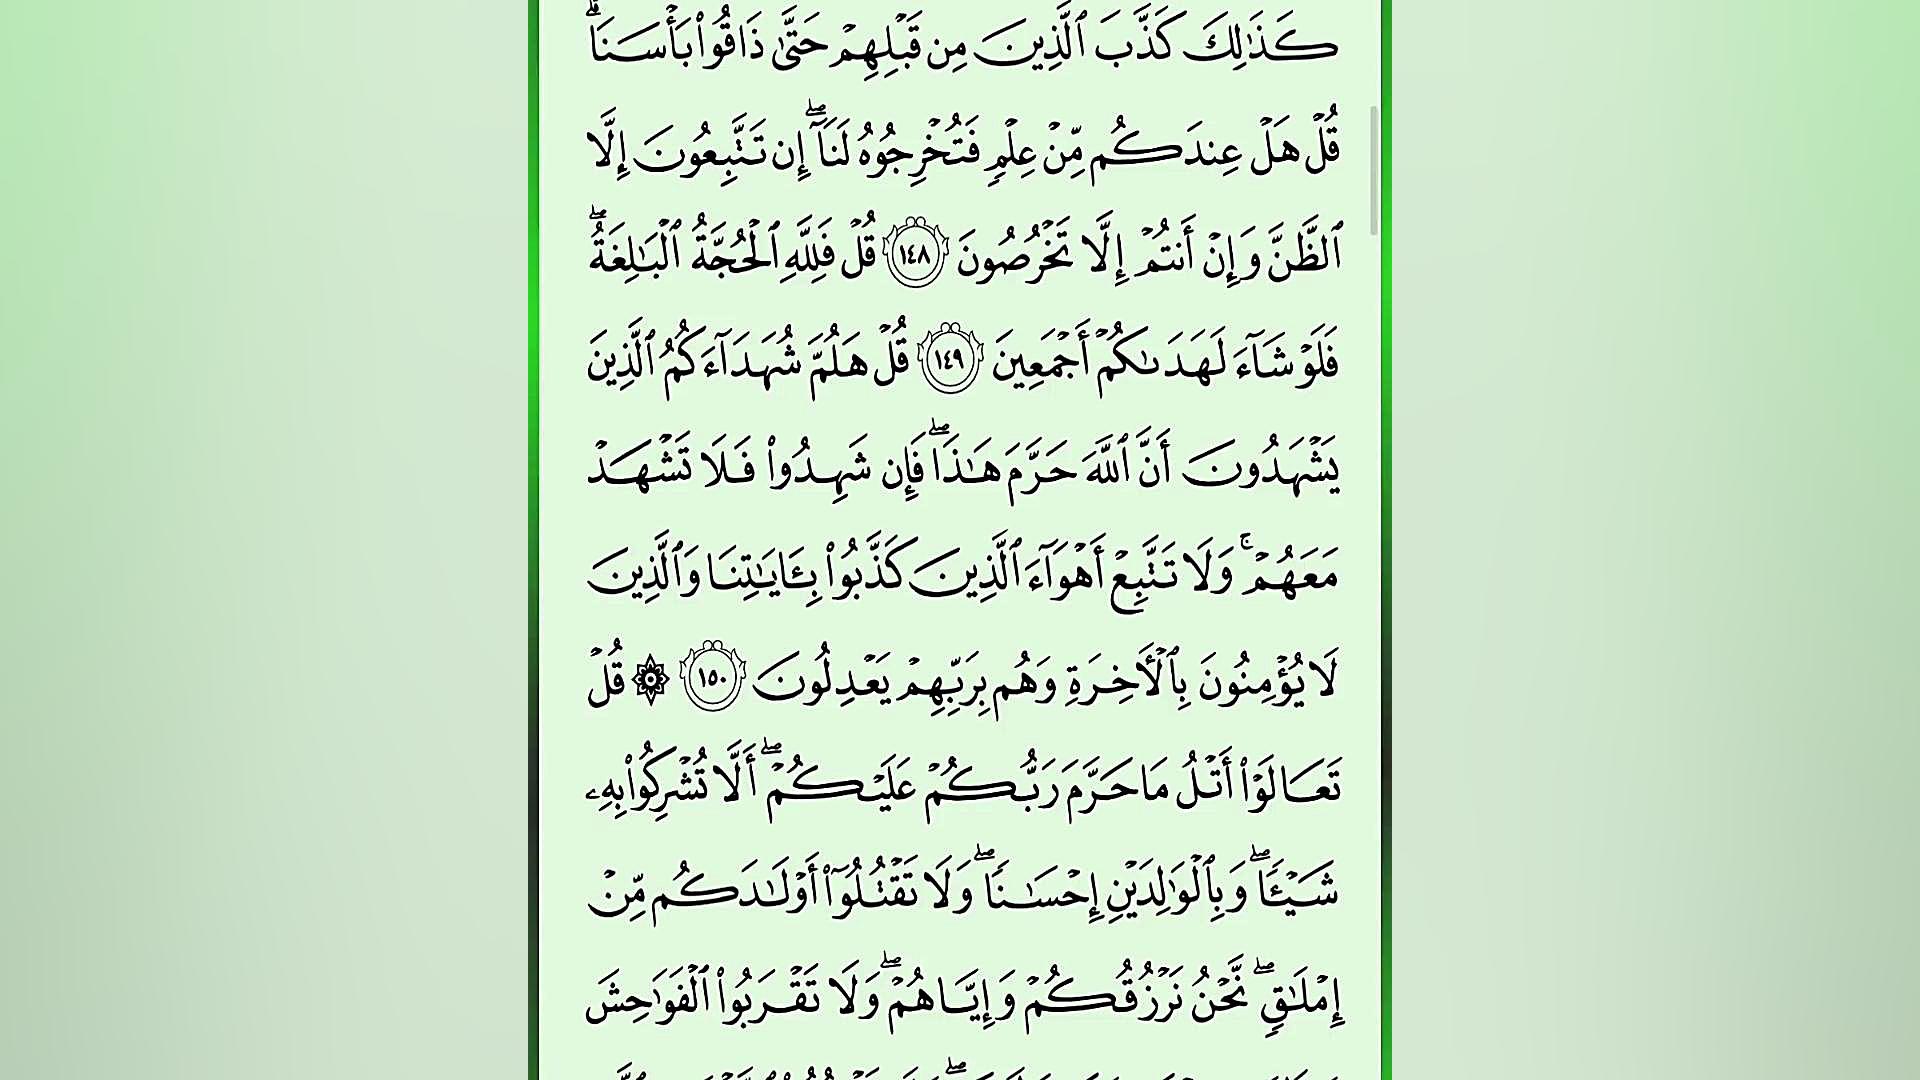 كَذَٰلِكَ كَذَّبَ ٱلَّذِينَ مِن قَبْلِهِمْ حَتَّىٰ ذَاقُوا۟ بَأْسَنَا ۗ
قُلْ هَلْ عِندَكُم مِّنْ عِلْمٍ فَتُخْرِجُوهُ لَنَآ ۖ إِن تَتَّبِعُونَ إِلَّا
ٱلظَّنَّ وَإِنْ أَنتُمْ إِلَّا تَخْرُصُونَ ١٤٨ قُلْ فَلِلَّهِ ٱلْحُجَّةُ ٱلْبَـٰلِغَةُ ۖ
فَلَوْ شَآءَ لَهَدَىٰكُمْ أَجْمَعِينَ ١٤٩ قُلْ هَلُمَّ شُهَدَآءَكُمُ ٱلَّذِينَ
يَشْهَدُونَ أَنَّ ٱللَّهَ حَرَّمَ هَـٰذَا ۖ فَإِن شَهِدُوا۟ فَلَا تَشْهَدْ
مَعَهُمْ ۚ وَلَا تَتَّبِعْ أَهْوَآءَ ٱلَّذِينَ كَذَّبُوا۟ بِـَٔايَـٰتِنَا وَٱلَّذِينَ
لَا يُؤْمِنُونَ بِٱلْـَٔاخِرَةِ وَهُم بِرَبِّهِمْ يَعْدِلُونَ ١٥٠ ۞ قُلْ
تَعَالَوْا۟ أَتْلُ مَا حَرَّمَ رَبُّكُمْ عَلَيْكُمْ ۖ أَلَّا تُشْرِكُوا۟ بِهِۦ
شَيْـًٔا ۖ وَبِٱلْوَٰلِدَيْنِ إِحْسَـٰنًا ۖ وَلَا تَقْتُلُوٓا۟ أَوْلَـٰدَكُم مِّنْ
إِمْلَـٰقٍ ۖ نَّحْنُ نَرْزُقُكُمْ وَإِيَّاهُمْ ۖ وَلَا تَقْرَبُوا۟ ٱلْفَوَٰحِشَ